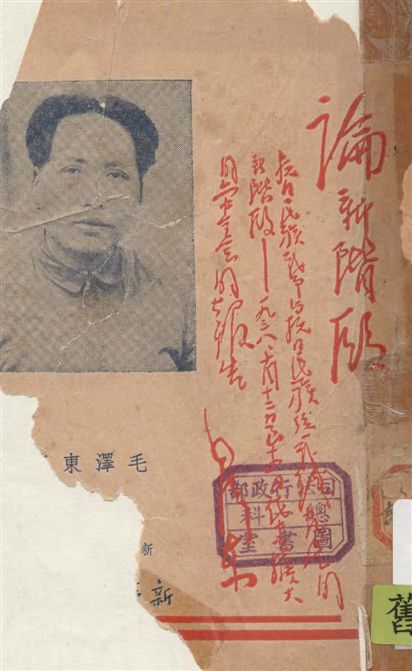 論新階段
抗日民族戰爭与抗日民族統一戰線發展的
新階段——一九三八、十月十二日至十四日在中共擴大
的六中全会的報告
毛澤東
司法行政部
總科
圖書室
毛澤東
新
新
舊